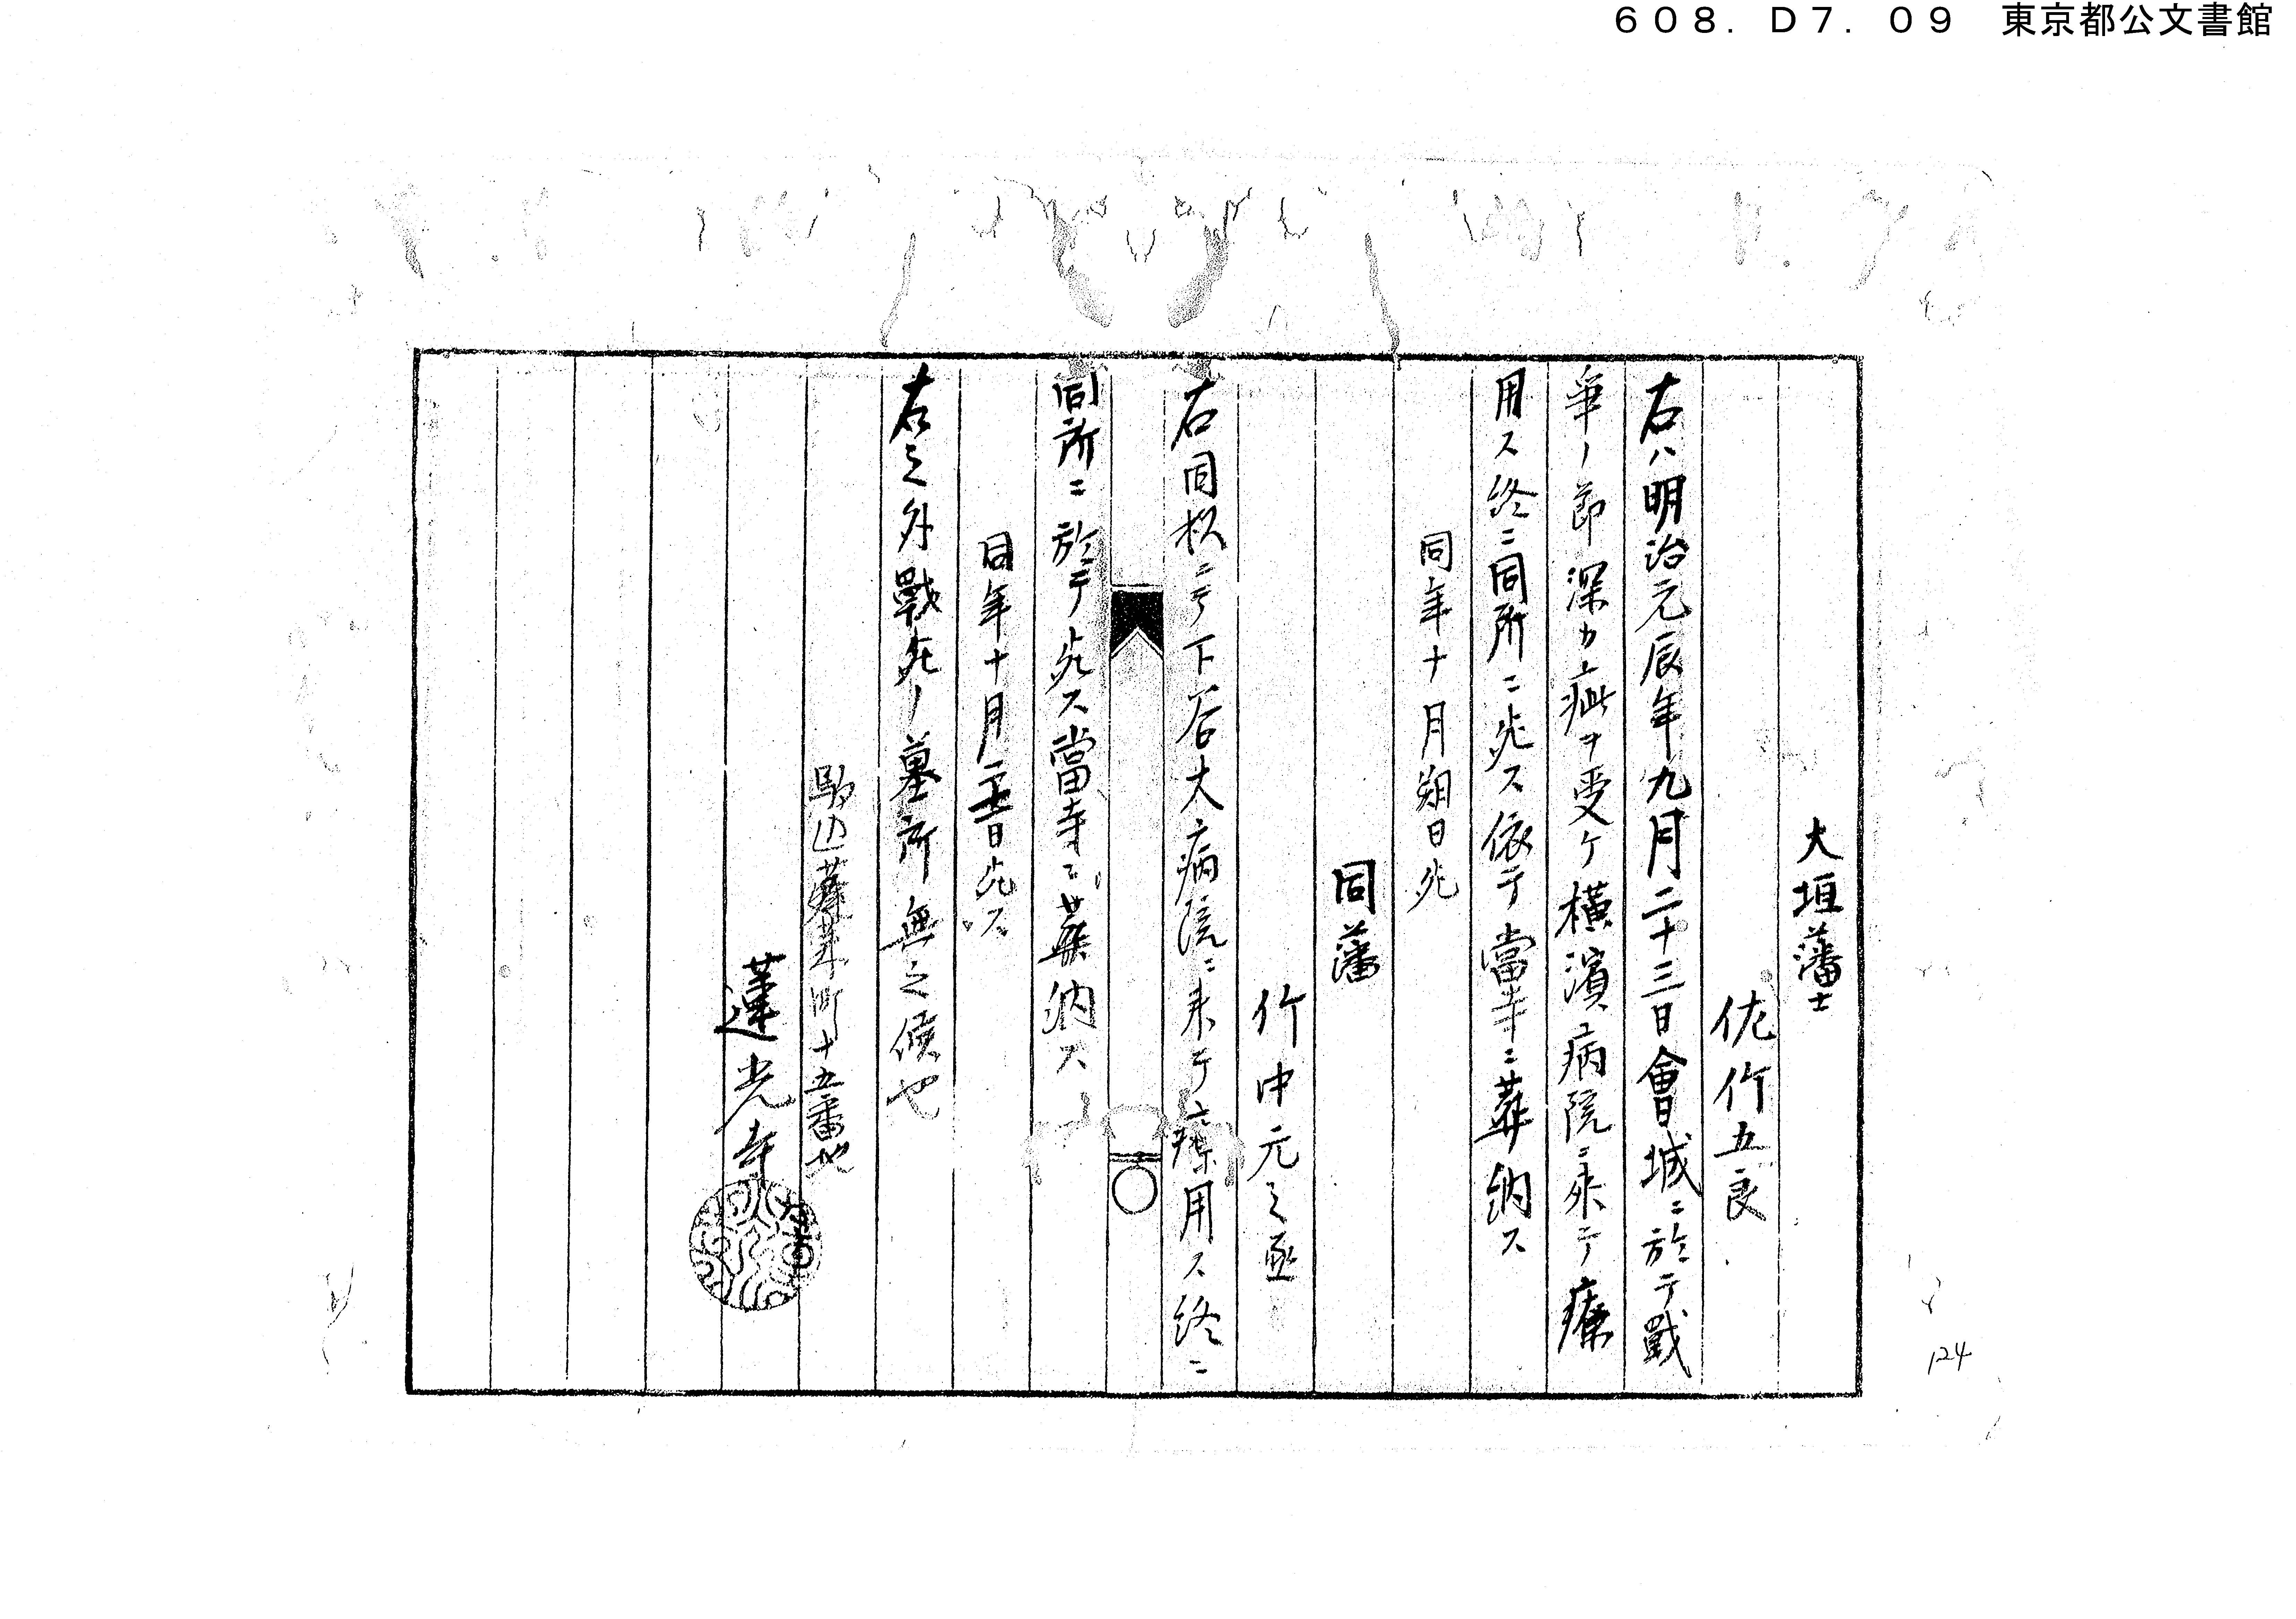 608. D7. 09 東京都公文書館
大垣藩士
佐竹五良
右ハ明治元辰年九月二十三日會城ニ於テ戰
争ノ節深カ疵ヲ受ケ横濱病院ニ来テ療
用ス終ニ同所ニ死ス依テ當寺ニ葬納ス
同年十月朔日死
同藩
竹中元之丞
右同校ニテ下谷大病院ニ来テ療用ス終ニ
同所ニ於テ死ス當寺ニ葬納ス
同年十月二十一日死ス
右之外戰死ノ墓所無之候也
駒込 町十五番地
蓮光寺
124